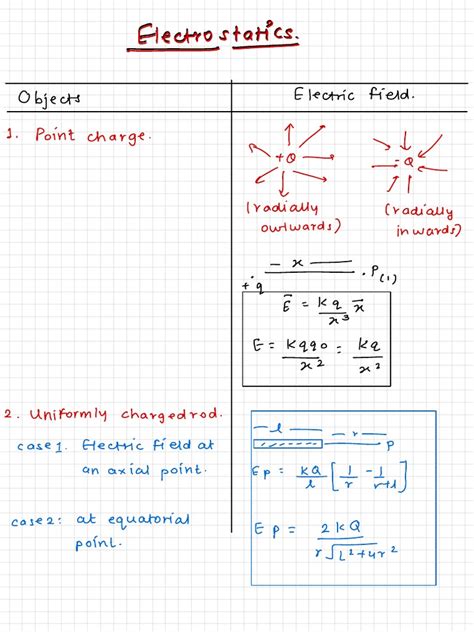 Electrostatics.
Objects
Electric field.
1. Point charge.
+Q
-Q
(radially outwards)
(radially inwards)
x
+q
.P(1)
E⃗ = kq/x³ x⃗
E = kqq0/x² = kq/x²
2. Uniformly charged rod.
l
r
P
case 1. Electric field at
an axial point.
Ep = kQ/l [1/r - 1/r+l]
case 2: at equatorial
point.
Ep = 2kQ/r√L²+4r²